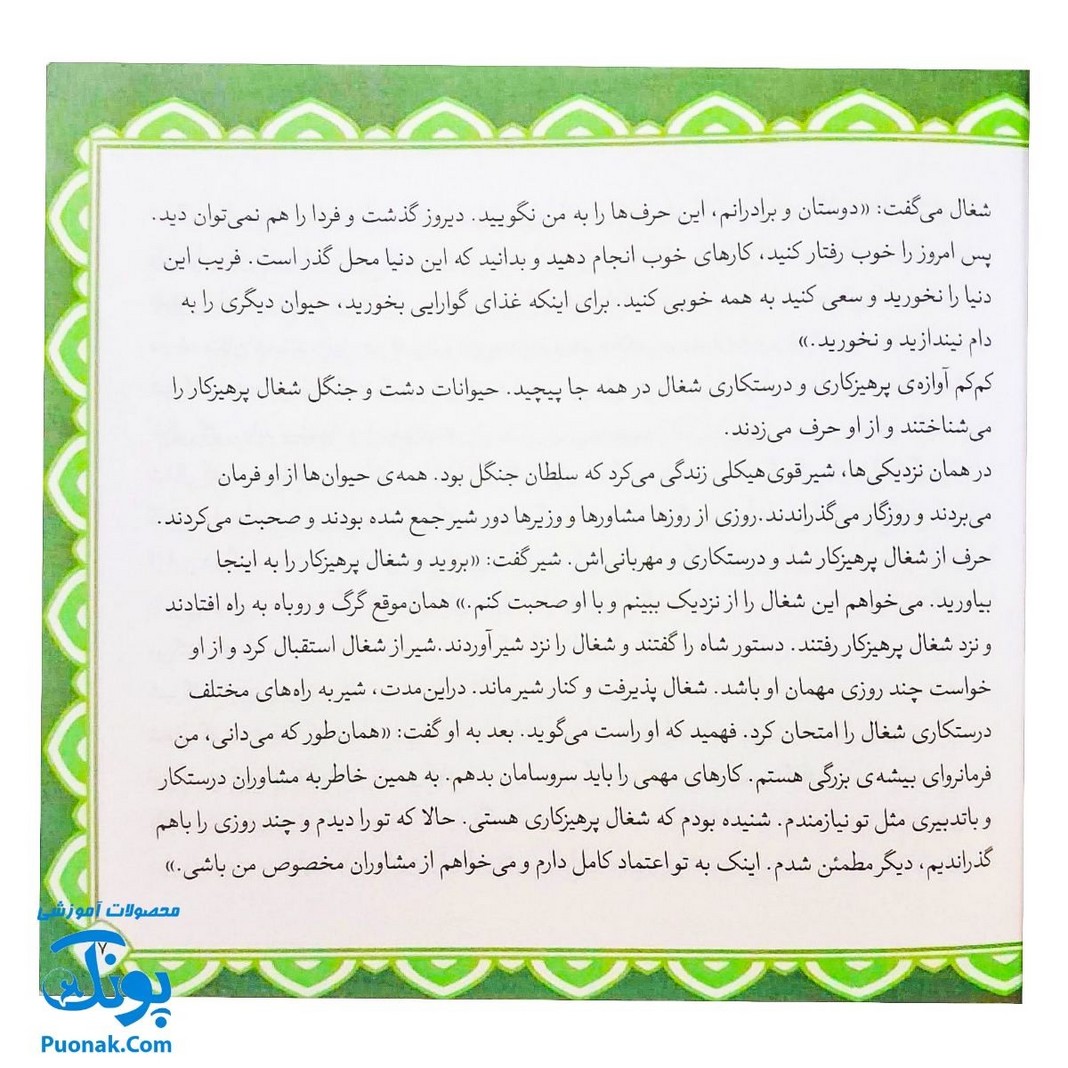 شغال می‌گفت: «دوستان و برادرانم، این حرف‌ها را به من نگویید. دیروز گذشت و فردا را هم نمی‌توان دید.
پس امروز را خوب رفتار کنید، کارهای خوب انجام دهید و بدانید که این دنیا محل گذر است. فریب این
دنیا را نخورید و سعی کنید به همه خوبی کنید. برای اینکه غذای گوارایی بخورید، حیوان دیگری را به
دام نیندازید و نخورید.»
کم‌کم آوازه‌ی پرهیزکاری و درستکاری شغال در همه جا پیچید. حیوانات دشت و جنگل شغال پرهیزکار را
می‌شناختند و از او حرف می‌زدند.
در همان نزدیکی‌ها، شیر قوی‌هیکلی زندگی می‌کرد که سلطان جنگل بود. همه‌ی حیوان‌ها از او فرمان
می‌بردند و روزگار می‌گذراندند.روزی از روزها مشاورها و وزیرها دور شیر جمع شده بودند و صحبت می‌کردند.
حرف از شغال پرهیزکار شد و درستکاری و مهربانی‌اش. شیر گفت: «بروید و شغال پرهیزکار را به اینجا
بیاورید. می‌خواهم این شغال را از نزدیک ببینم و با او صحبت کنم.» همان‌موقع گرگ و روباه به راه افتادند
و نزد شغال پرهیزکار رفتند. دستور شاه را گفتند و شغال را نزد شیر آوردند.شیر از شغال استقبال کرد و از او
خواست چند روزی مهمان او باشد. شغال پذیرفت و کنار شیر ماند. دراین‌مدت، شیر به راه‌های مختلف
درستکاری شغال را امتحان کرد. فهمید که او راست می‌گوید. بعد به او گفت: «همان‌طور که می‌دانی، من
فرمانروای بیشه‌ی بزرگی هستم. کارهای مهمی را باید سروسامان بدهم. به همین خاطر به مشاوران درستکار
و باتدبیری مثل تو نیازمندم. شنیده بودم که شغال پرهیزکاری هستی. حالا که تو را دیدم و چند روزی را باهم
گذراندیم، دیگر مطمئن شدم. اینک به تو اعتماد کامل دارم و می‌خواهم از مشاوران مخصوص من باشی.»
محصولات آموزشی
۷
پونک
Puonak.Com